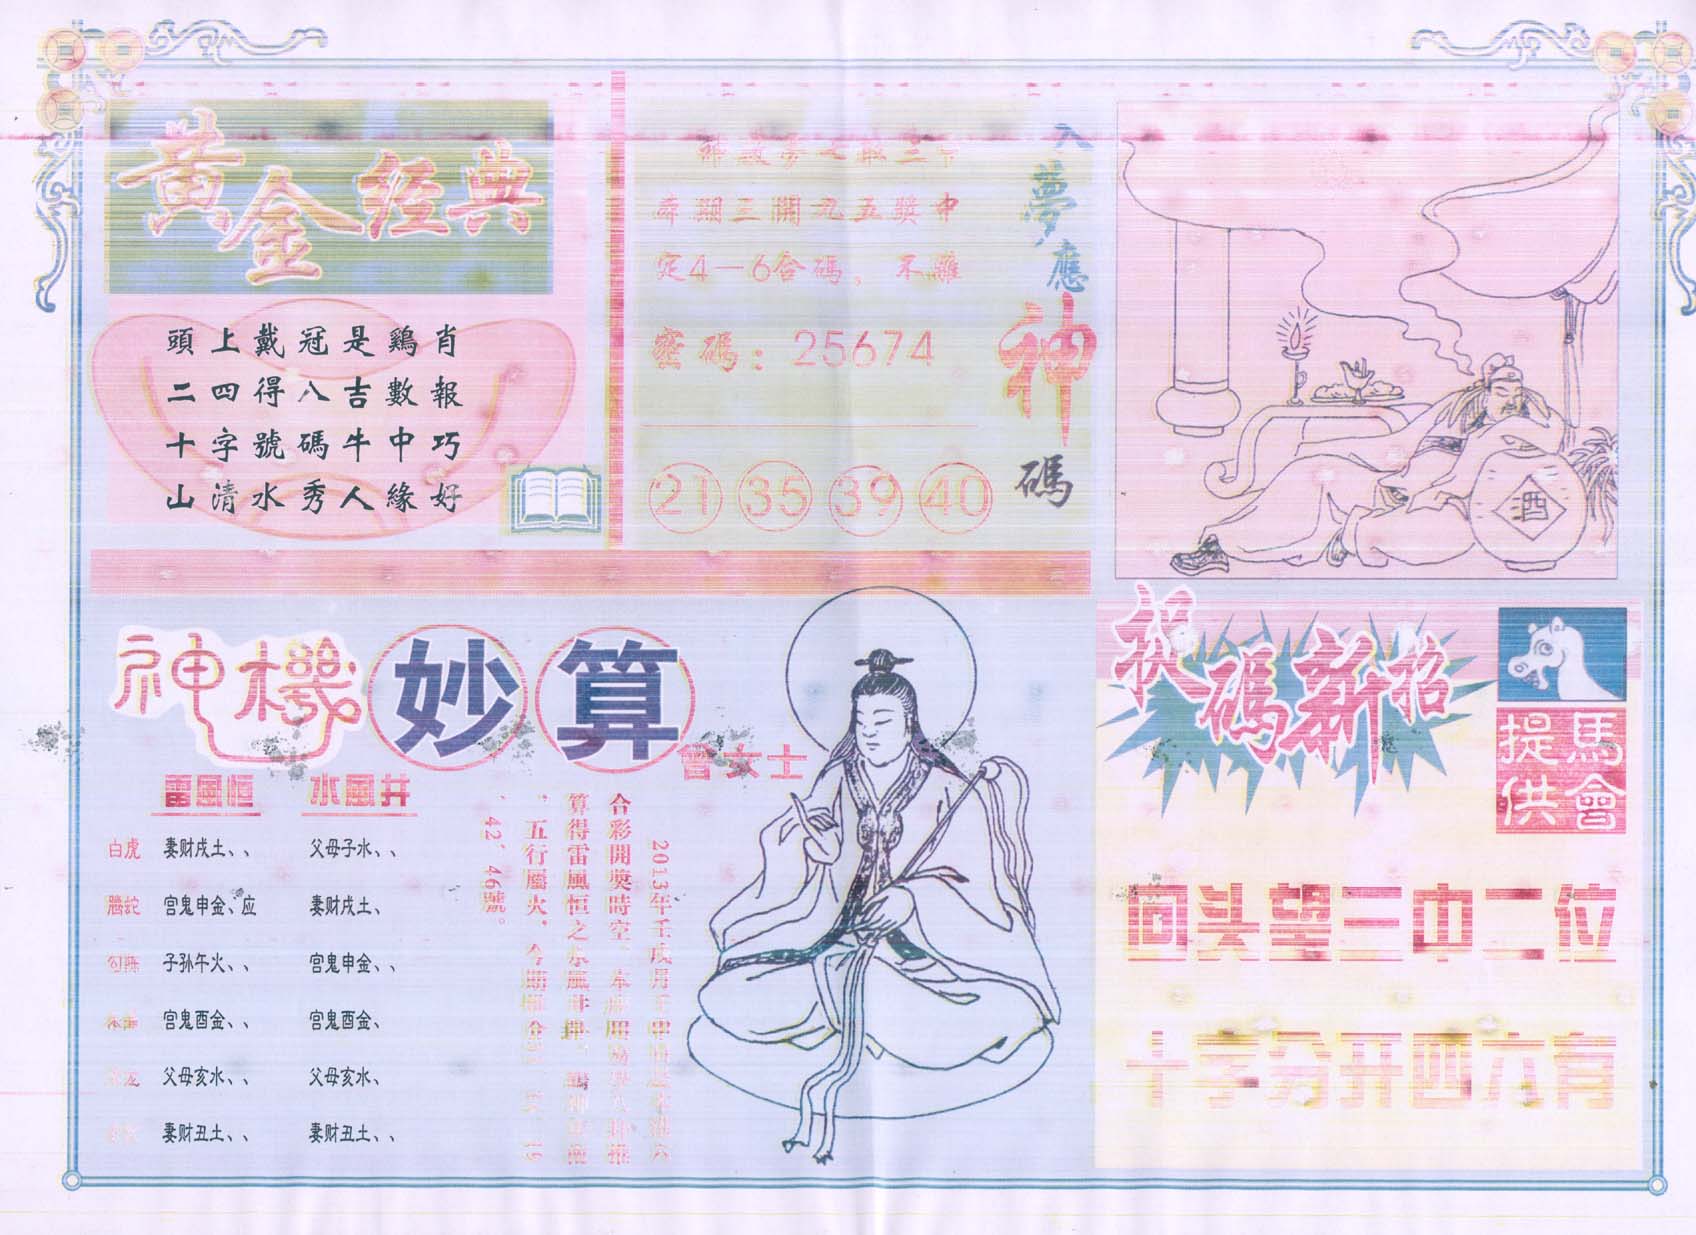 黃金經典
頭上戴冠是鷄肖
二四得八吉數報
十字號碼牛中巧
山清水秀人緣好
奇期三開九五獎中
定4－6合碼，不離
密碼：25674
21 35 39 40
入夢應神碼
酒
神機妙算
曾女士
雷風恒 水風井
白虎 妻财戌土、、 父母子水、、
螣蛇 官鬼申金、应 妻财戌土、
勾陈 子孙午火、、 官鬼申金、、
官鬼酉金、、 官鬼酉金、
父母亥水、、 父母亥水、
妻财丑土、、 妻财丑土、、
2013年壬戌月
合彩開獎時空、本
算得雷風恒之水風井
、五行屬火、今期
、42、46號。
捉碼新招
馬會提供
回头望三中二位
十字分开四六有